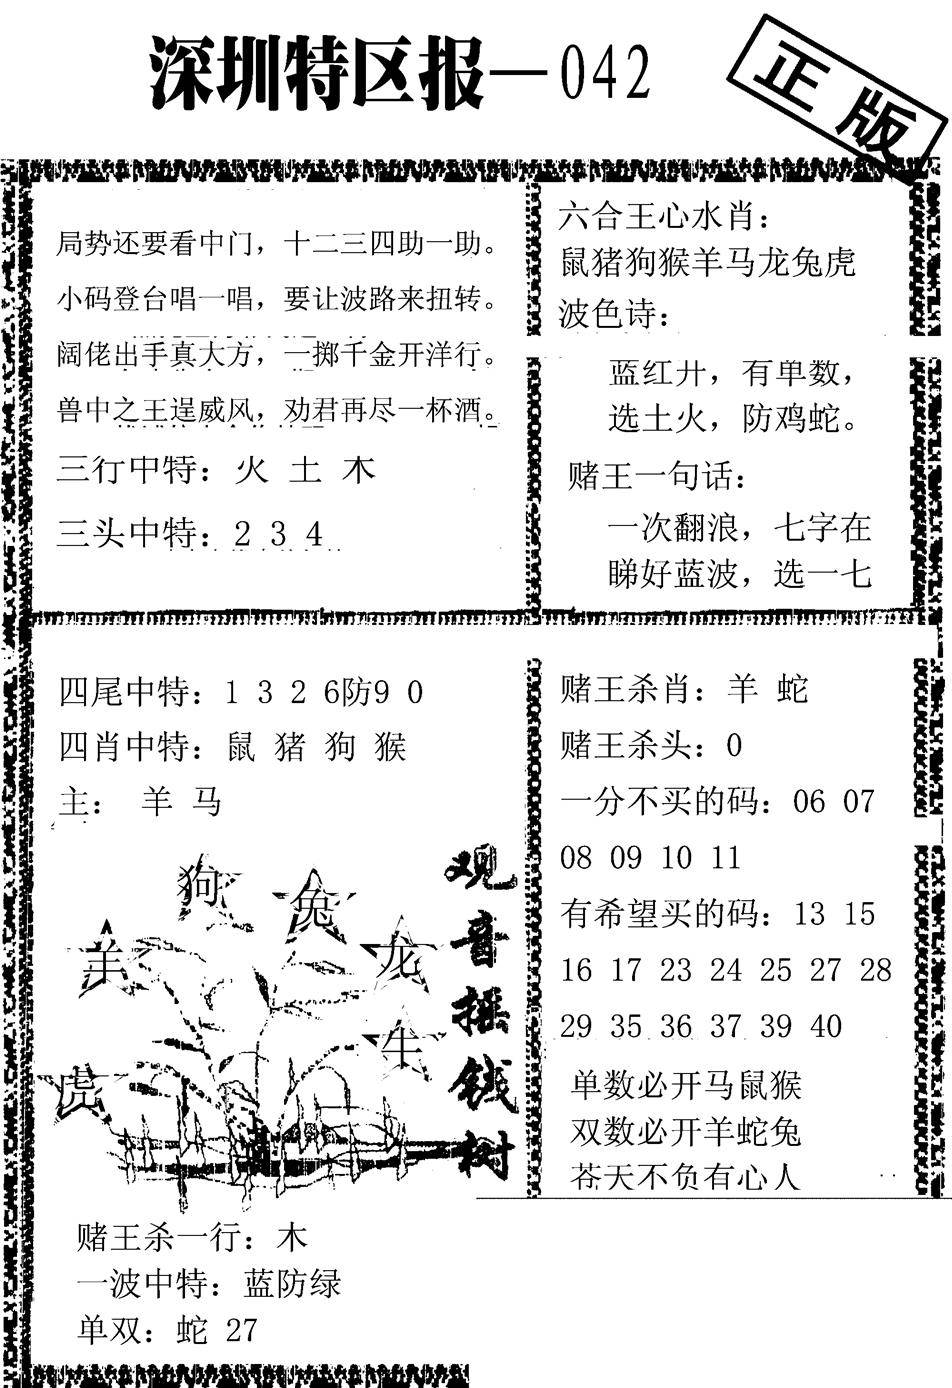 深圳特区报—042
正版
局势还要看中门，十二三四助一助。
小码登台唱一唱，要让波路来扭转。
阔佬出手真大方，一掷千金开洋行。
兽中之王逞威风，劝君再尽一杯酒。
三行中特：火 土 木
三头中特：2 3 4
六合王心水肖：
鼠猪狗猴羊马龙兔虎
波色诗：
蓝红开，有单数，
选土火，防鸡蛇。
赌王一句话：
一次翻浪，七字在
睇好蓝波，选一七
四尾中特：1 3 2 6防9 0
四肖中特：鼠 猪 狗 猴
主： 羊 马
狗
兔
羊
龙
牛
虎
观音摇钱树
赌王杀一行：木
一波中特：蓝防绿
单双：蛇 27
赌王杀肖：羊 蛇
赌王杀头：0
一分不买的码：06 07
08 09 10 11
有希望买的码：13 15
16 17 23 24 25 27 28
29 35 36 37 39 40
单数必开马鼠猴
双数必开羊蛇兔
苍天不负有心人